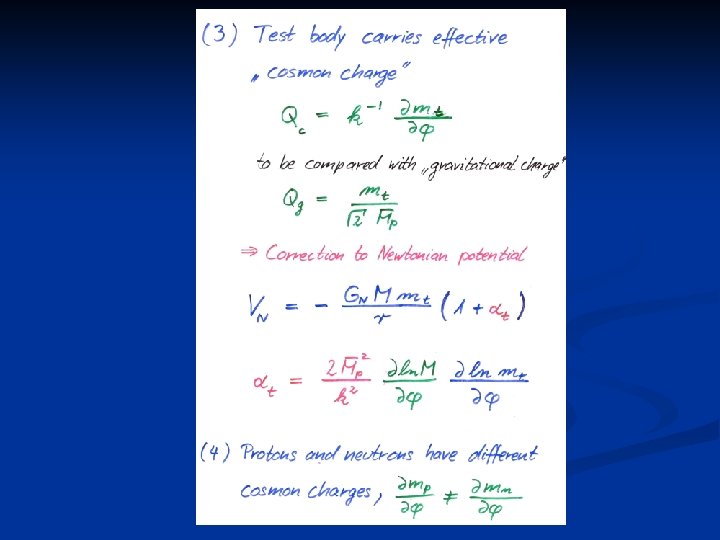 (3) Test body carries effective
„cosmon charge“
Q_c = k^{-1} ∂m_t/∂φ
to be compared with „gravitational charge“
Q_g = m_t / (√2 M̄_p)
⇒ Correction to Newtonian potential
V_N = - G_N M m_t / r (1 + α_t)
α_t = 2 M̄_p^2 / k^2 ∂ln M/∂φ ∂ln m_t/∂φ
(4) Protons and neutrons have different
cosmon charges, ∂m_p/∂φ ≠ ∂m_n/∂φ